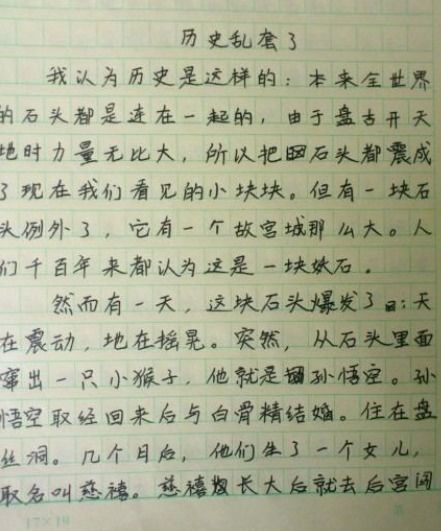 历史乱套了
我认为历史是这样的：本来全世界
的石头都是连在一起的，由于盘古开天
地时力量无比大，所以把石头都震成
了现在我们看见的小块块。但有一块石
头例外了，它有一个故宫城那么大。人
们千百年来都认为这是一块妖石。
然而有一天，这块石头爆发了：天
在震动，地在摇晃。突然，从石头里面
窜出一只小猴子，他就是孙悟空。孙
悟空取经回来后与白骨精结婚。住在盘
丝洞。几个月后，他们生了一个女儿，
取名叫慈禧。慈禧长大后就去后宫闯
17×18